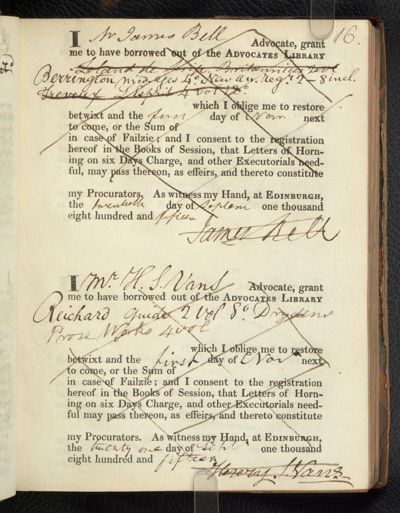 16.
I Mr James Bell Advocate, grant
me to have borrowed out of the ADVOCATES LIBRARY
Berrington 4o New An. Regr 2 - 8
4 vol
which I oblige me to restore
betwixt and the first day of Nov next
to come, or the Sum of
in case of Failzie; and I consent to the registration
hereof in the Books of Session, that Letters of Horn-
ing on six Days Charge, and other Executorials need-
ful, may pass thereon, as effeirs, and thereto constitute
my Procurators. As witness my Hand, at EDINBURGH,
the twentieth day of Septem one thousand
eight hundred and fifteen
James Bell
I Mr H. S. Vans Advocate, grant
me to have borrowed out of the ADVOCATES LIBRARY
Reichard guide 2 vol 8o Drydens
Prose Works 4 vol
which I oblige me to restore
betwixt and the first day of Nov next
to come, or the Sum of
in case of Failzie; and I consent to the registration
hereof in the Books of Session, that Letters of Horn-
ing on six Days Charge, and other Executorials need-
ful may pass thereon, as effeirs, and thereto constitute
my Procurators. As witness my Hand, at EDINBURGH,
the twenty one day of Sept one thousand
eight hundred and fifteen
Vans